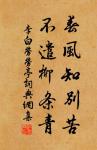 春風知別苦
不遣柳條青
李白勞勞亭詞典網集